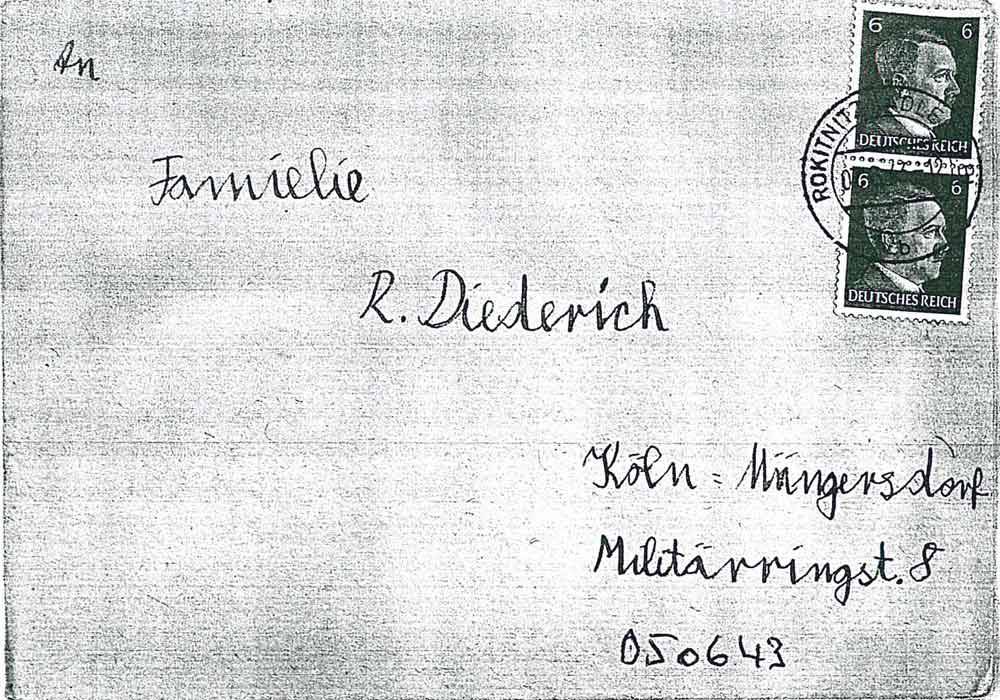 An
Famielie
R. Diederich
Köln = Müngersdorf
Militärringst. 8
050643
6 6
DEUTSCHES REICH
ROKITNITZ
6 6
DEUTSCHES REICH
b